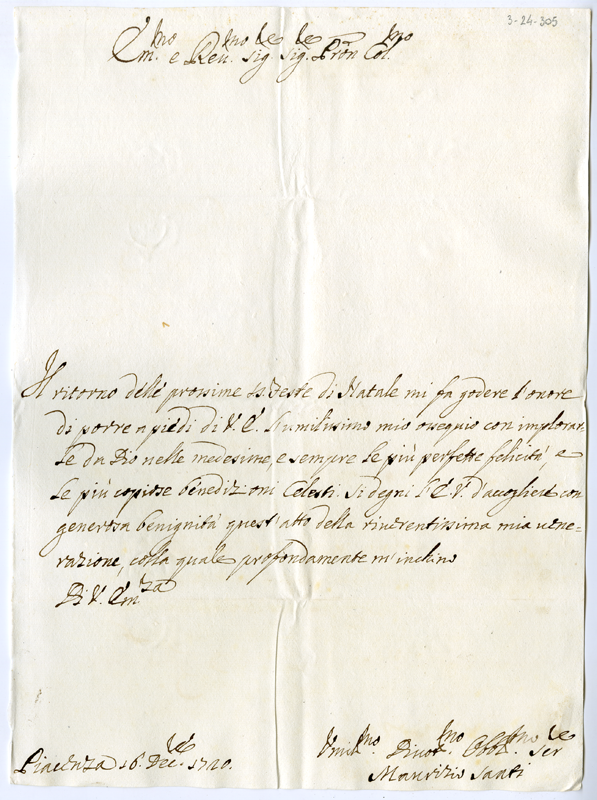 3-24-305
Em.mo e Reu.mo Sig.re Sig.re Pron Col.mo
Il ritorno delle prossime SS. Feste di Natale mi fa godere l'onore
di porre a piedi di V. E. l'umilissimo mio ossequio con implorar
le da Dio nelle medesime, e sempre le più perfette felicità, e
le più copiose benedizioni Celesti. Si degni l'E. V. d'accogliere con
generosa benignità quest'atto della riuerentissima mia uene=
razione, colla quale profondamente m'inchino
Di V. Em.za
Piacenza 16. Dec.re 1720.
Vmil.mo Diuot.mo Obbl.mo Ser.re
Maurizio Santi